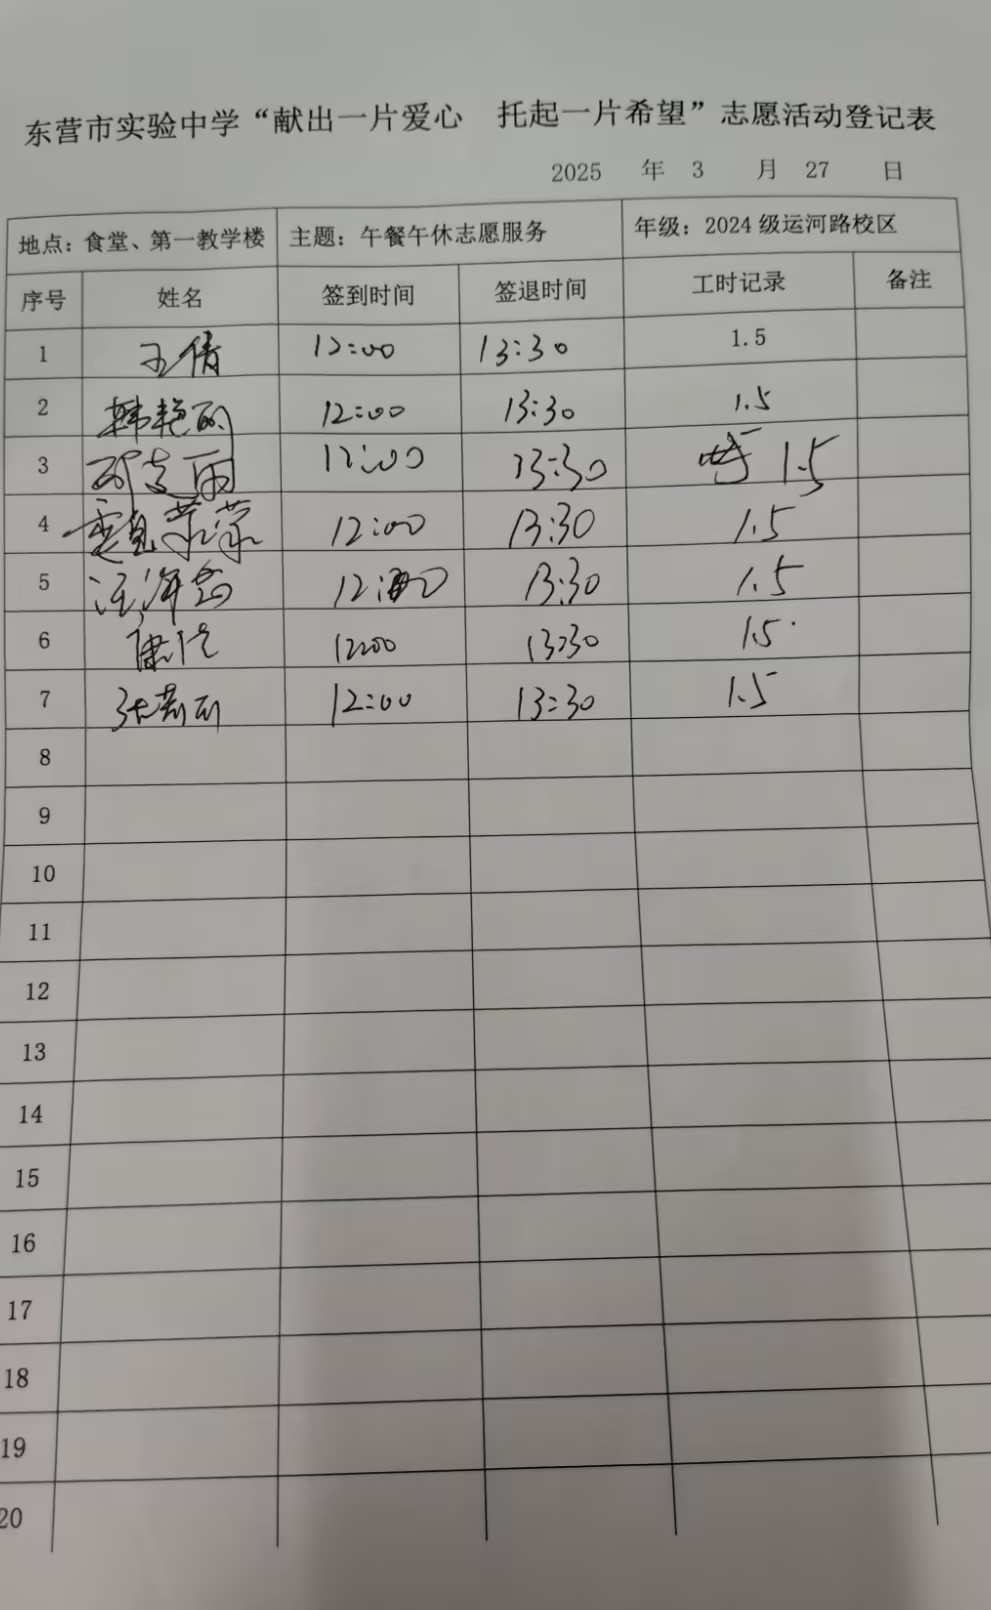 东营市实验中学“献出一片爱心 托起一片希望”志愿活动登记表
2025 年 3 月 27 日
地点：食堂、第一教学楼 主题：午餐午休志愿服务 年级：2024 级运河路校区
序号 姓名 签到时间 签退时间 工时记录 备注
1 王倩 12:00 13:30 1.5
2 韩艳丽 12:00 13:30 1.5
3 12:00 13:30 1.5
4 12:00 13:30 1.5
5 12:00 13:30 1.5
6 12:00 13:30 1.5
7 12:00 13:30 1.5
8
9
10
11
12
13
14
15
16
17
18
19
20